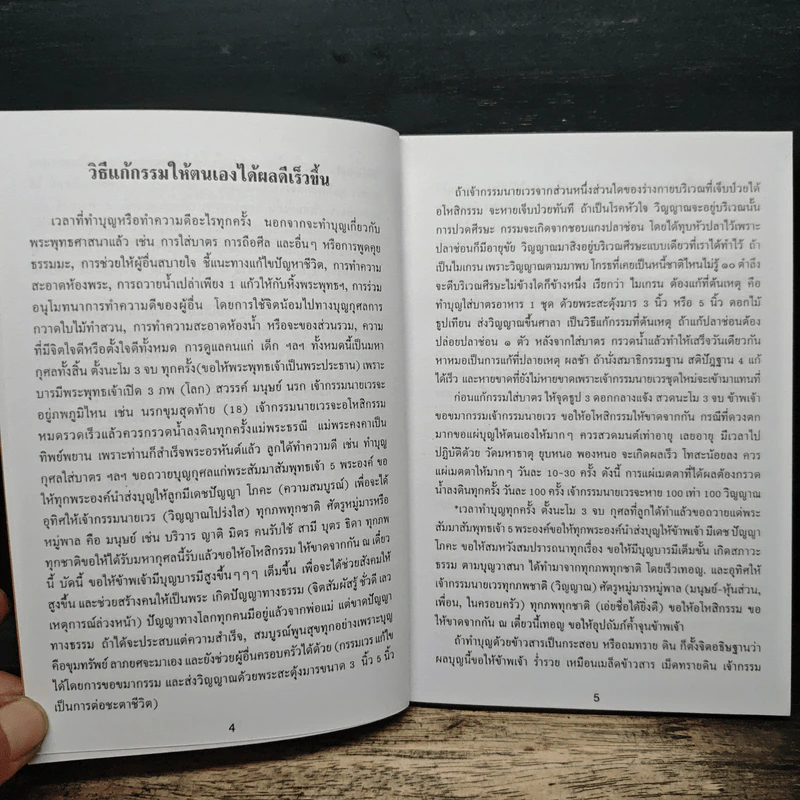 วิธีแก้กรรมให้ตนเองได้ผลดีเร็วขึ้น
เวลาที่ทำบุญหรือทำความดีอะไรทุกครั้ง นอกจากจะทำบุญเกี่ยวกับ
พระพุทธศาสนาแล้ว เช่น การใส่บาตร การถือศีล และอื่นๆ หรือการพูดคุย
ธรรมมะ, การช่วยให้ผู้อื่นสบายใจ ชี้แนะทางแก้ไขปัญหาชีวิต, การทำความ
สะอาดห้องพระ, การถวายน้ำเปล่าเพียง 1 แก้วให้กับหิ้งพระพุทธฯ, การร่วม
อนุโมทนาการทำความดีของผู้อื่น โดยการใช้จิตน้อมไปทางบุญกุศลการ
กวาดใบไม้ทำสวน, การทำความสะอาดห้องน้ำ หรือจะของส่วนรวม, ความ
ที่มีจิตใจดีหรือตั้งใจดีทั้งหมด การดูแลคนแก่ เด็ก ฯลฯ ทั้งหมดนี้เป็นมหา
กุศลทั้งสิ้น ตั้งนะโม 3 จบ ทุกครั้ง(ขอให้พระพุทธเจ้าเป็นพระประธาน) เพราะ
บารมีพระพุทธเจ้าเปิด 3 ภพ (โลก) สวรรค์ มนุษย์ นรก เจ้ากรรมนายเวรจะ
อยู่ภพภูมิไหน เช่น นรกขุมสุดท้าย (18) เจ้ากรรมนายเวรจะอโหสิกรรม
หมดรวดเร็วแล้วควรกรวดน้ำลงดินทุกครั้งแม่พระธรณี แม่พระคงคาเป็น
ทิพย์พยาน เพราะท่านก็สำเร็จพระอรหันต์แล้ว ลูกได้ทำความดี เช่น ทำบุญ
กุศลใส่บาตร ฯลฯ ขอถวายบุญกุศลแก่พระสัมมาสัมพุทธเจ้า 5 พระองค์ ขอ
ให้ทุกพระองค์นำส่งบุญให้ลูกมีเดชปัญญา โภคะ (ความสมบูรณ์) เพื่อจะได้
อุทิศให้เจ้ากรรมนายเวร (วิญญาณโปร่งใส) ทุกภพทุกชาติ ศัตรูหมู่มารหรือ
หมู่พาล คือ มนุษย์ เช่น บริวาร ญาติ มิตร คนรับใช้ สามี บุตร ธิดา ทุกภพ
ทุกชาติขอให้ได้รับมหากุศลนี้รับแล้วขอให้อโหสิกรรม ให้ขาดจากกัน ณ เดี๋ยว
นี้ บัดนี้ ขอให้ข้าพเจ้ามีบุญบารมีสูงขึ้นๆๆๆ เต็มขึ้น เพื่อจะได้ช่วยสังคมให้
สูงขึ้น และช่วยสร้างคนให้เป็นพระ เกิดปัญญาทางธรรม (จิตสัมผัสรู้ ชั่วดี เลว
เหตุการณ์ล่วงหน้า) ปัญญาทางโลกทุกคนมีอยู่แล้วจากพ่อแม่ แต่ขาดปัญญา
ทางธรรม ถ้าได้จะประสบแต่ความสำเร็จ, สมบูรณ์พูนสุขทุกอย่างเพราะบุญ
คือขุมทรัพย์ ลาภยศจะมาเอง และยังช่วยผู้อื่นครอบครัวได้ด้วย (กรรมเวร แก้ไข
ได้โดยการขอขมากรรม และส่งวิญญาณด้วยพระสะดุ้งมารขนาด 3 นิ้ว 5 นิ้ว
เป็นการต่อชะตาชีวิต)
4
ถ้าเจ้ากรรมนายเวรจากส่วนหนึ่งส่วนใดของร่างกายบริเวณที่เจ็บป่วยได้
อโหสิกรรม จะหายเจ็บป่วยทันที ถ้าเป็นโรคหัวใจ วิญญาณจะอยู่บริเวณนั้น
การปวดศีรษะ กรรมจะเกิดจากชอบแกงปลาช่อน โดยได้ทุบหัวปลาไว้เพราะ
ปลาช่อนก็มีอายุขัย วิญญาณมาสิงอยู่บริเวณศีรษะแบบเดียวที่เราได้ทำไว้ ถ้า
เป็นไมเกรน เพราะวิญญาณตามมาพบ โกรธที่เคยเป็นหนี้ชาติไหนไม่รู้ ๑๐ ตำลึง
จะตีบริเวณศีรษะไม่ข้างใดก็ข้างหนึ่ง เรียกว่า ไมเกรน ต้องแก้ที่ต้นเหตุ คือ
ทำบุญใส่บาตรอาหาร 1 ชุด ด้วยพระสะดุ้งมาร 3 นิ้ว หรือ 5 นิ้ว ดอกไม้
ธูปเทียน ส่งวิญญาณขึ้นศาลา เป็นวิธีแก้กรรมที่ต้นเหตุ ถ้าแก้ปลาช่อนต้อง
ปล่อยปลาช่อน ๑ ตัว หลังจากใส่บาตร กรวดน้ำแล้วทำให้เสร็จวันเดียวกัน
หาหมอเป็นการแก้ที่ปลายเหตุ ผลช้า ถ้านั่งสมาธิกรรมฐาน สติปัฏฐาน 4 แก้
ได้เร็ว และหายขาดที่ยังไม่หายขาดเพราะเจ้ากรรมนายเวรชุดใหม่จะเข้ามาแทนที่
ก่อนแก้กรรมใส่บาตร ให้จุดธูป 3 ดอกกลางแจ้ง สวดนะโม 3 จบ ข้าพเจ้า
ขอขมากรรมเจ้ากรรมนายเวร ขอให้อโหสิกรรมให้ขาดจากกัน กรณีที่ดวงตก
มากขอแผ่บุญให้ตนเองให้มากๆ ควรสวดมนต์เท่าอายุ เลยอายุ มีเวลาไป
ปฏิบัติด้วย วัดมหาธาตุ ยุบหนอ พองหนอ จะเกิดผลเร็ว โทสะน้อยลง ควร
แผ่เมตตาให้มากๆ วันละ 10-30 ครั้ง ดังนี้ การแผ่เมตตาที่ได้ผลต้องกรวด
น้ำลงดินทุกครั้ง วันละ 100 ครั้ง เจ้ากรรมนายเวรจะหาย 100 เท่า 100 วิญญาณ
*เวลาทำบุญทุกครั้ง ตั้งนะโม 3 จบ กุศลที่ลูกได้ทำแล้วขอถวายแด่พระ
สัมมาสัมพุทธเจ้า 5 พระองค์ขอให้ทุกพระองค์นำส่งบุญให้ข้าพเจ้า มีเดช ปัญญา
โภคะ ขอให้สมหวังสมปรารถนาทุกเรื่อง ขอให้มีบุญบารมีเต็มขั้น เกิดสภาวะ
ธรรม ตามบุญวาสนา ได้ทำมาจากทุกภพทุกชาติ โดยเร็วเทอญ. และอุทิศให้
เจ้ากรรมนายเวรทุกภพชาติ (วิญญาณ) ศัตรูหมู่มารหมู่พาล (มนุษย์-หุ้นส่วน,
เพื่อน, ในครอบครัว) ทุกภพทุกชาติ (เอ่ยชื่อได้ยิ่งดี) ขอให้อโหสิกรรม ขอ
ให้ขาดจากกัน ณ เดี๋ยวนี้เทอญ ขอให้อุปถัมภ์ค้ำจุนข้าพเจ้า
ถ้าทำบุญด้วยข้าวสารเป็นกระสอบ หรือถมทราย ดิน ก็ตั้งจิตอธิษฐานว่า
ผลบุญนี้ขอให้ข้าพเจ้า ร่ำรวย เหมือนเมล็ดข้าวสาร เม็ดทรายดิน เจ้ากรรม
5